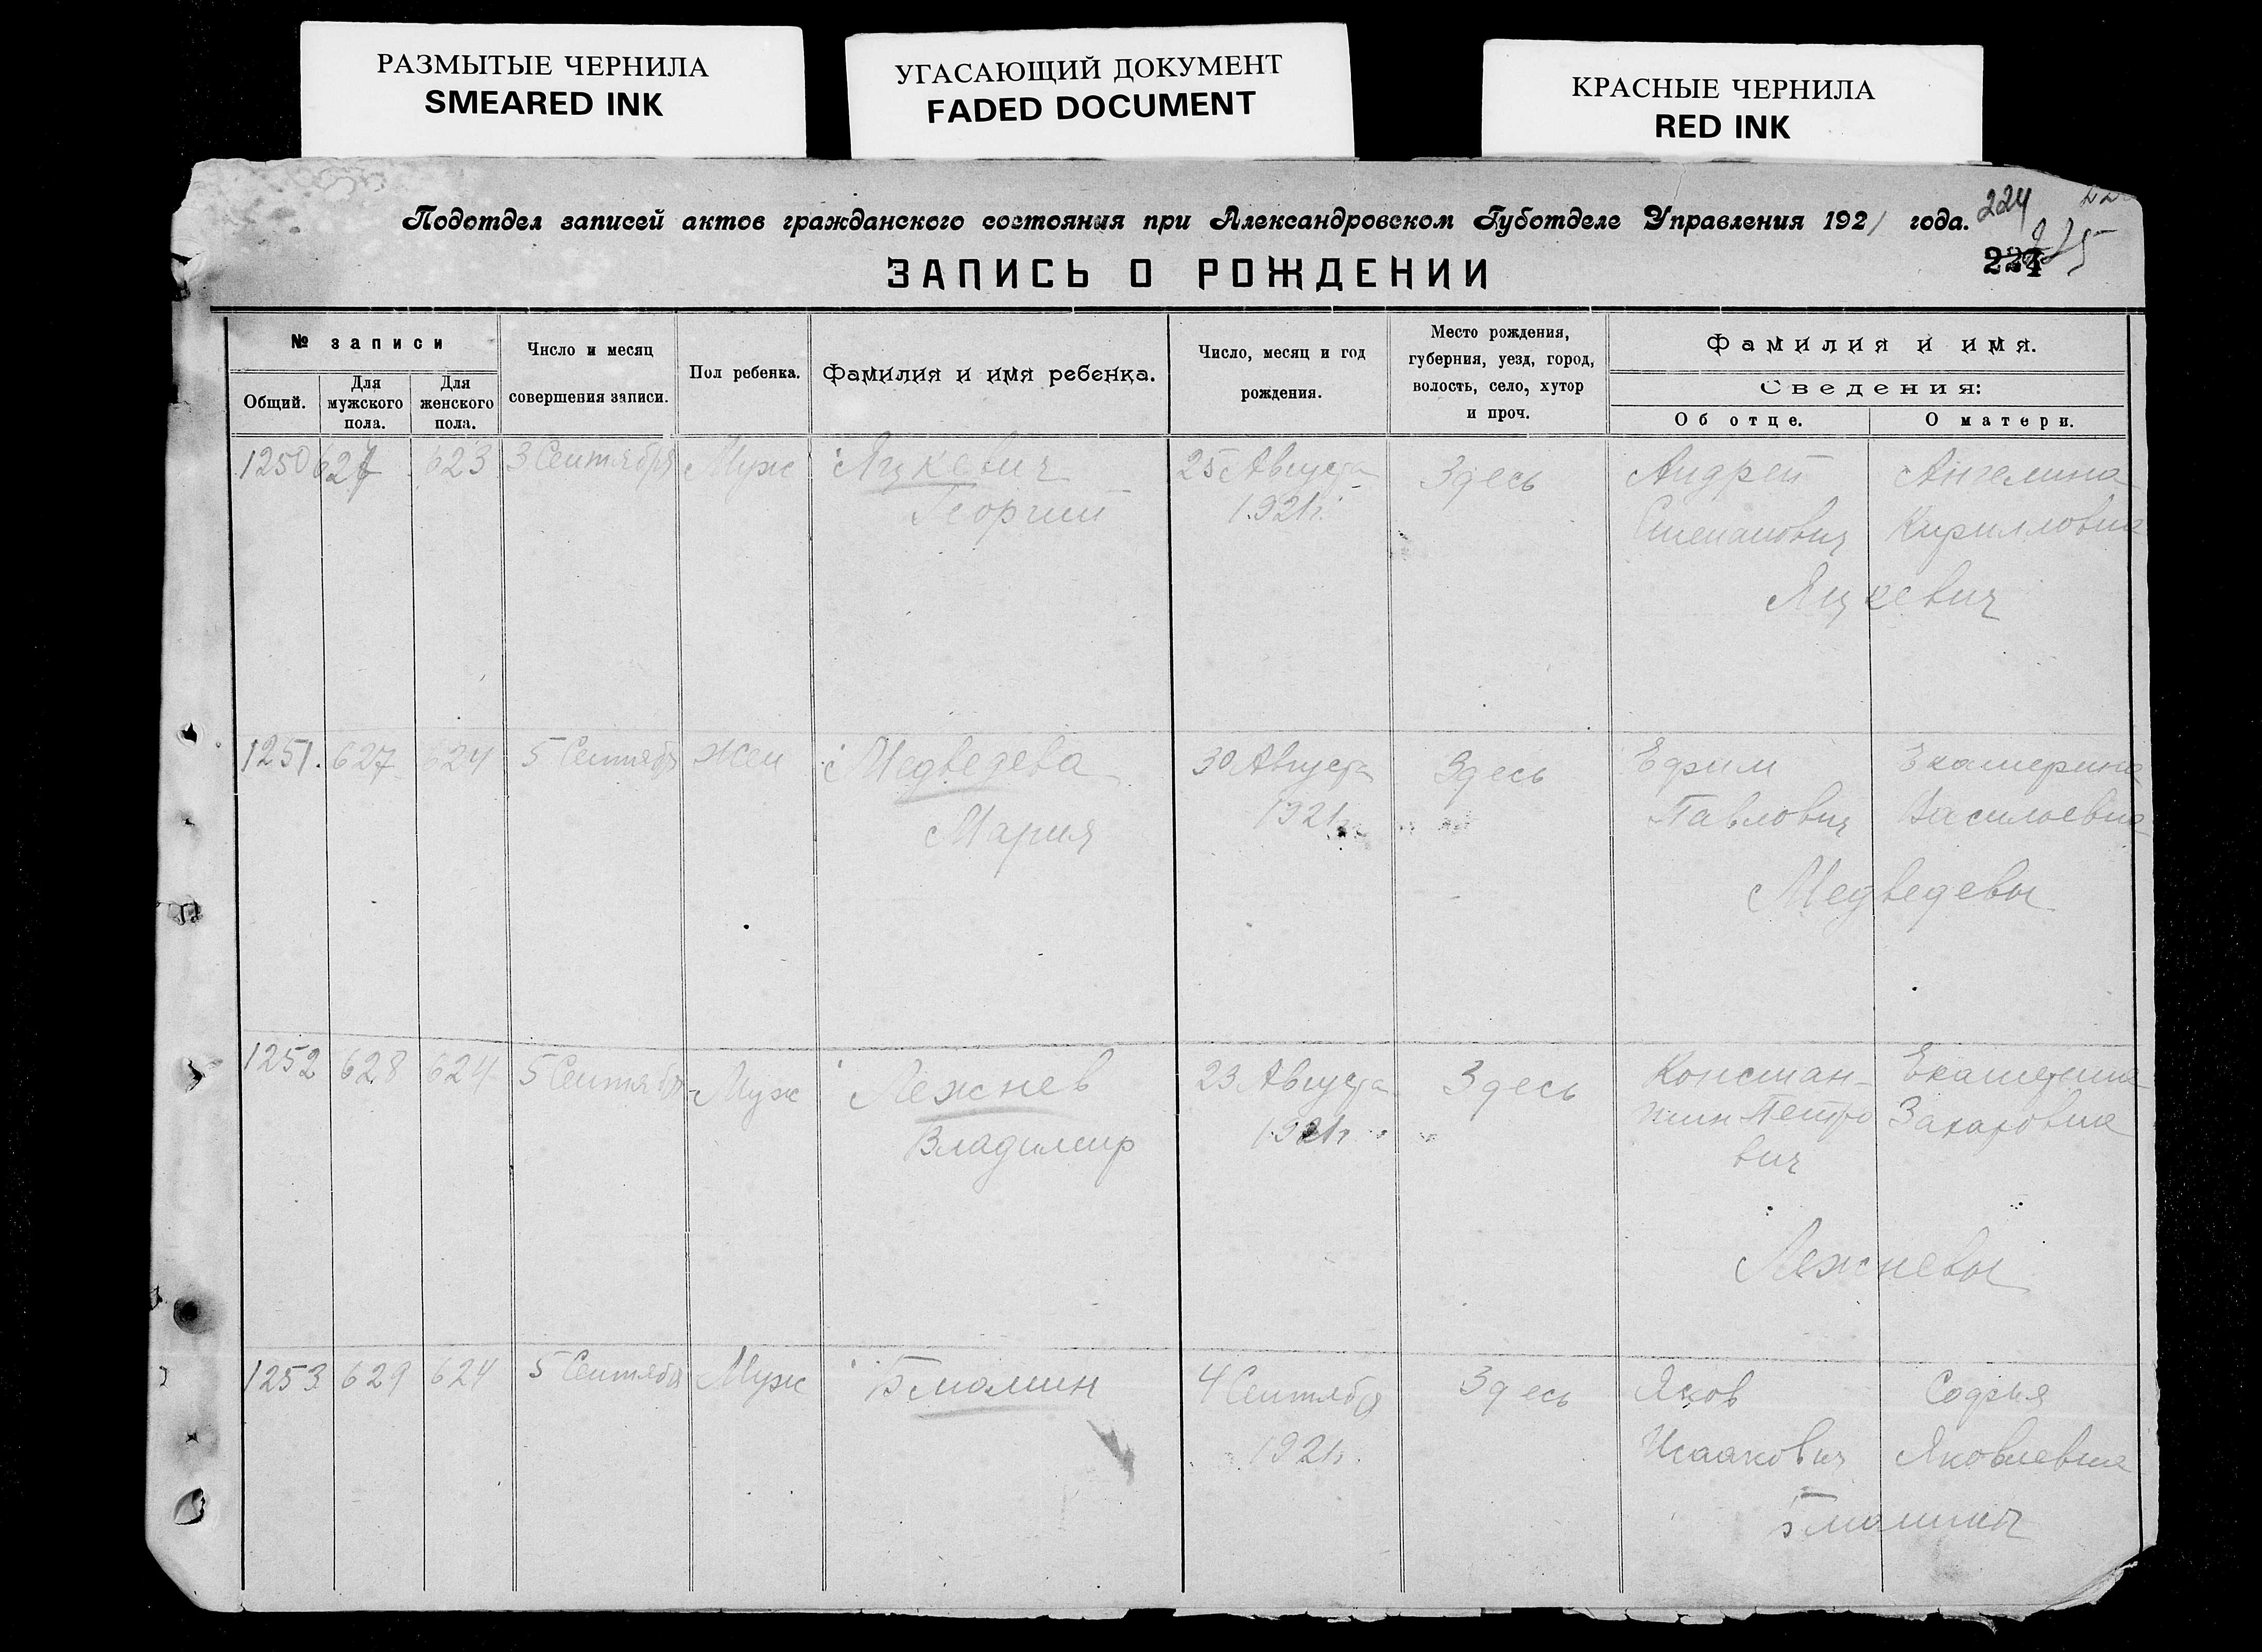 РАЗМЫТЫЕ ЧЕРНИЛА
SMEARED INK
УГАСАЮЩИЙ ДОКУМЕНТ
FADED DOCUMENT
КРАСНЫЕ ЧЕРНИЛА
RED INK
Подотдел записей актов гражданского состояния при Александровском Губотделе Управления 1921 года.
224
225
224
ЗАПИСЬ О РОЖДЕНИИ
№ записи
Общий.
Для мужского пола.
Для женского пола.
Число и месяц
совершения записи.
Пол ребенка.
Фамилия и имя ребенка.
Число, месяц и год
рождения.
Место рождения,
губерния, уезд, город,
волость, село, хутор
и проч.
Фамилия и имя.
Сведения:
Об отце.
О матери.
1250 627 623 3 Сентября Муж Яцкевич 25 Августа Здесь Андрей Ангелина
Георгий 1921г. Степанович Кирилловна
Яцкевич
1251. 627 624 5 Сентября Жен Медведева 30 Августа Здесь Ефим Екатерина
Мария 1921г. Павлович Васильевна
Медведевы
1252 628 624 5 Сентября Муж Лежнев 23 Августа Здесь Констан- Екатерина
Владимир 1921г тин Петро Захаровна
вич
Лежневы
1253 629 624 5 Сентября Муж 4 Сентября Здесь Яков Софья
1921г. Исаакович Яковлевна